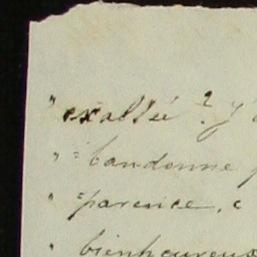 " exaltée ? J'
" =bandonne
" =parence, c
" bienheureux